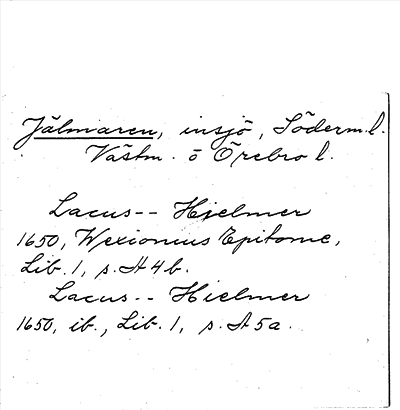 Jälmaren, insjö, Söderm. l.
Västm. o Örebro l.
Lacus-- Hjelmer
1650, Wexionius Epitome,
Lib. 1, s. A4b.
Lacus-- Hielmer
1650, ib., Lib. 1, s. A5a.